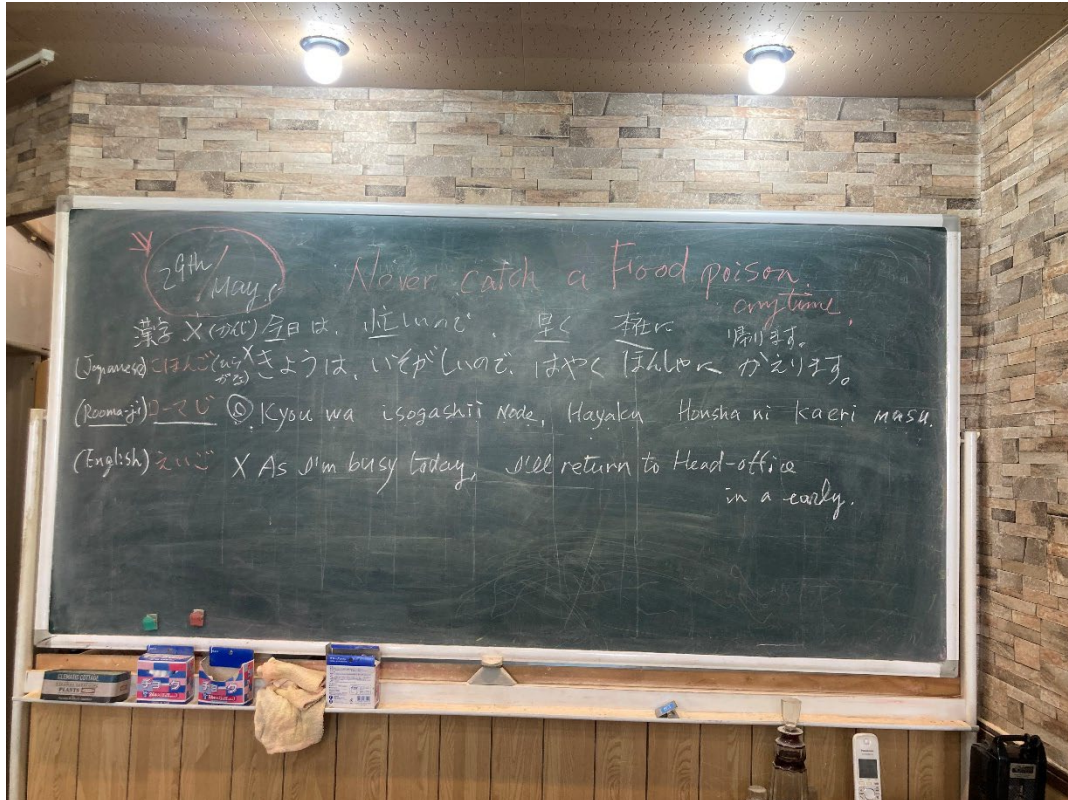 29th/ May.
Never catch a Food poison.
anytime.
漢字 X (かんじ) 今日は、忙しいので、早く 本社に 帰ります。
(Japanese) にほんご (ひらがな) X きょうは、いそがしいので、はやく ほんしゃに かえります。
(Rooma-ji) ローマじ ◎. Kyou wa isogashii Node, Hayaku Honsha ni kaeri masu.
(English) えいご X As I'm busy today, I'll return to Head-office
in a early.
チョーク
チョーク